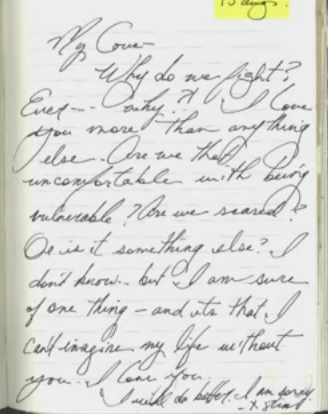 15 days.
My Love
Why do we fight?
Ever -- why?? I love
you more than anything
else. Are we that
uncomfortable with being
vulnerable? Are we scared?
Or is it something else? I
don't know.. but I am sure
of one thing - and its that I
can't imagine my life without
you. I love you.
I will do better. I am sorry.